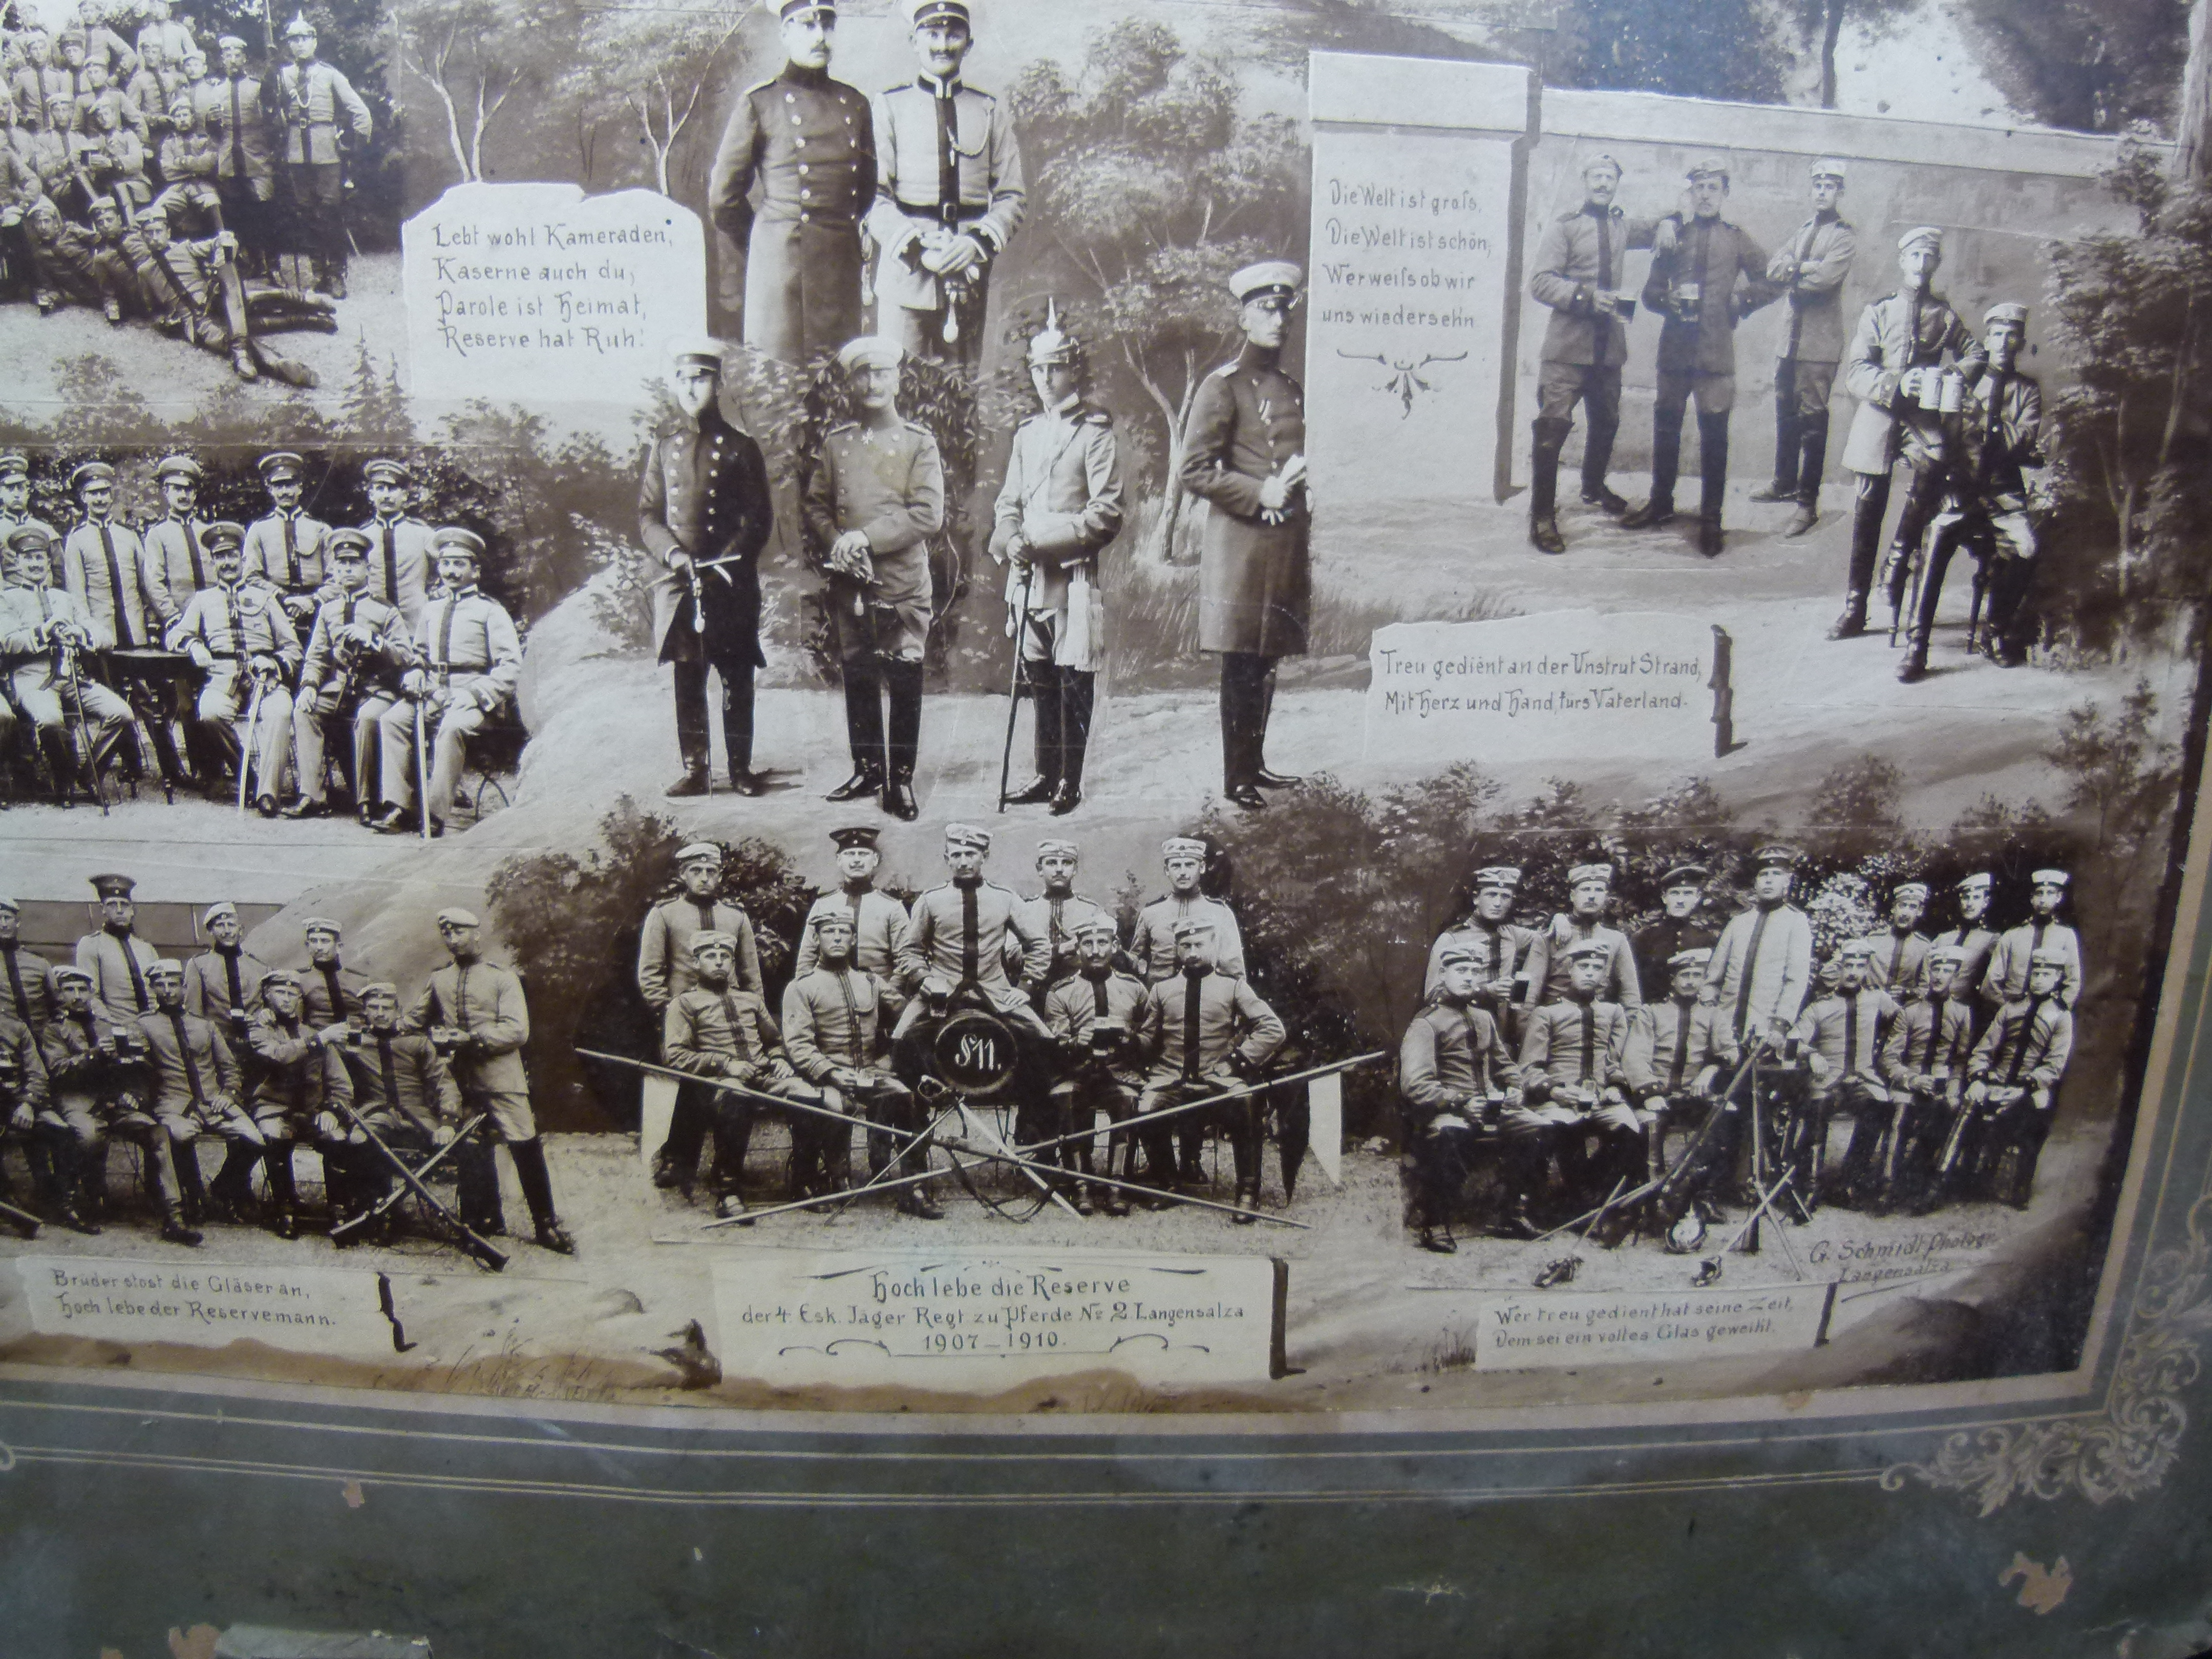 Lebt wohl Kameraden,
Kaserne auch du,
Parole ist Heimat,
Reserve hat Ruh!
Die Welt ist grofs,
Die Welt ist schön,
Wer weifs ob wir
uns wiedersehn.
Treu gedient an der Unstrut Strand,
Mit Herz und Hand fürs Vaterland.
Bruder stost die Gläser an,
Hoch lebe der Reservemann.
Hoch lebe die Reserve
der 4. Esk. Jäger Regt zu Pferde No 2 Langensalza
1907 – 1910.
G. Schmidt Photogr.
Langensalza
Wer treu gedient hat seine Zeit,
Dem sei ein volles Glas geweiht.